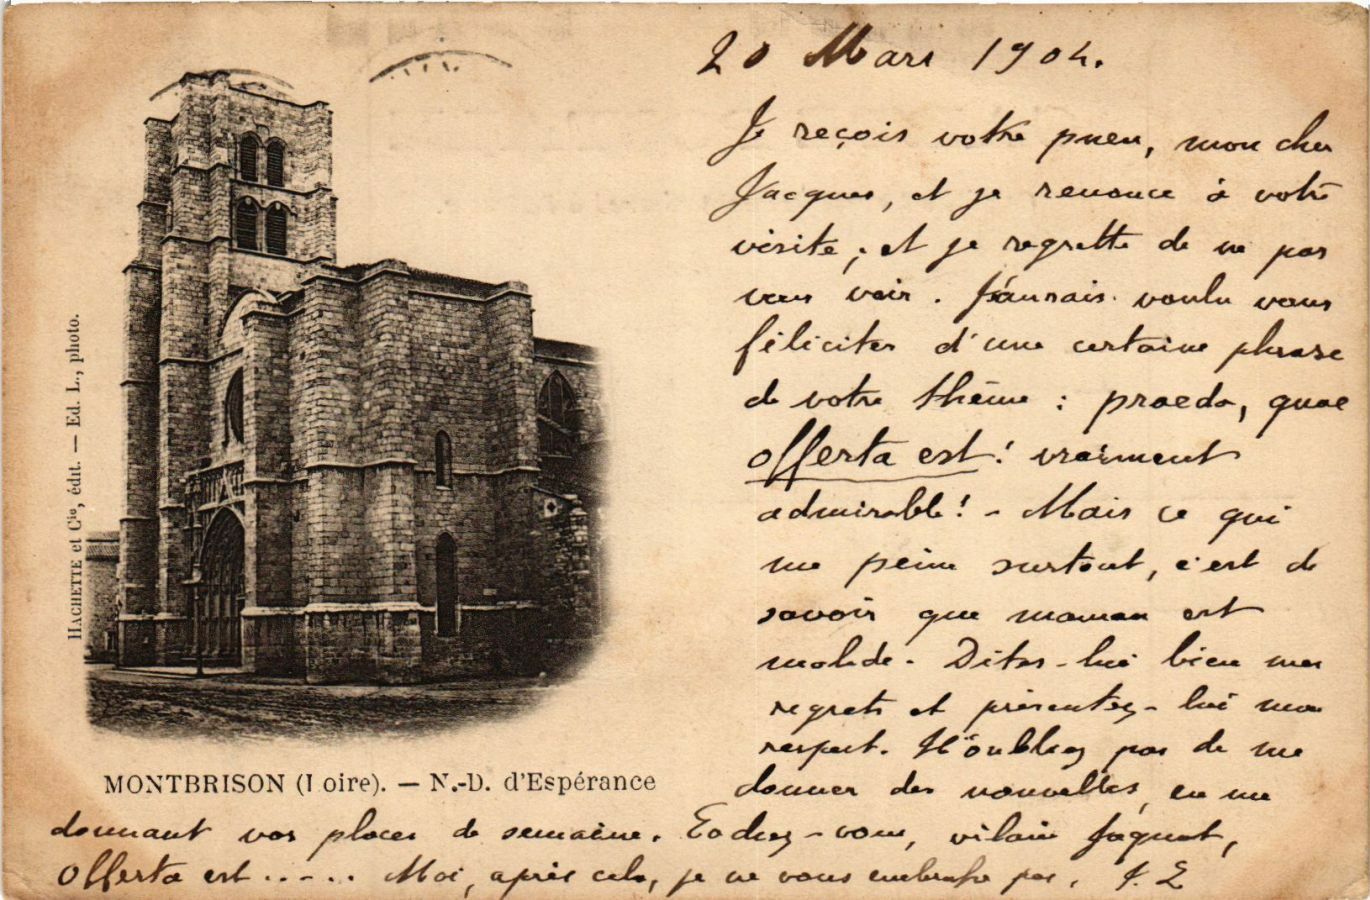 20 Mars 1904.
Je reçois votre pneu, mon cher
Jacques, et je renonce à votre
visite ; et je regrette de ne pas
vous voir. J'aurais voulu vous
féliciter d'une certaine phrase
de votre thème : praeda, quae
offerta est ! vraiment
admirable ! - Mais ce qui
me peine surtout, c'est de
savoir que maman est
malade. Dites-lui bien mes
regrets et présentez-lui mon
respect. N'oubliez pas de me
donner des nouvelles, en me
donnant vos places de semaine. Cachez-vous, vilain Jaquot,
Offerta est..... Moi, après cela, je ne vous embrasse pas.
HACHETTE et Cie, édit. — Ed. L., photo.
MONTBRISON (Loire). — N.-D. d'Espérance